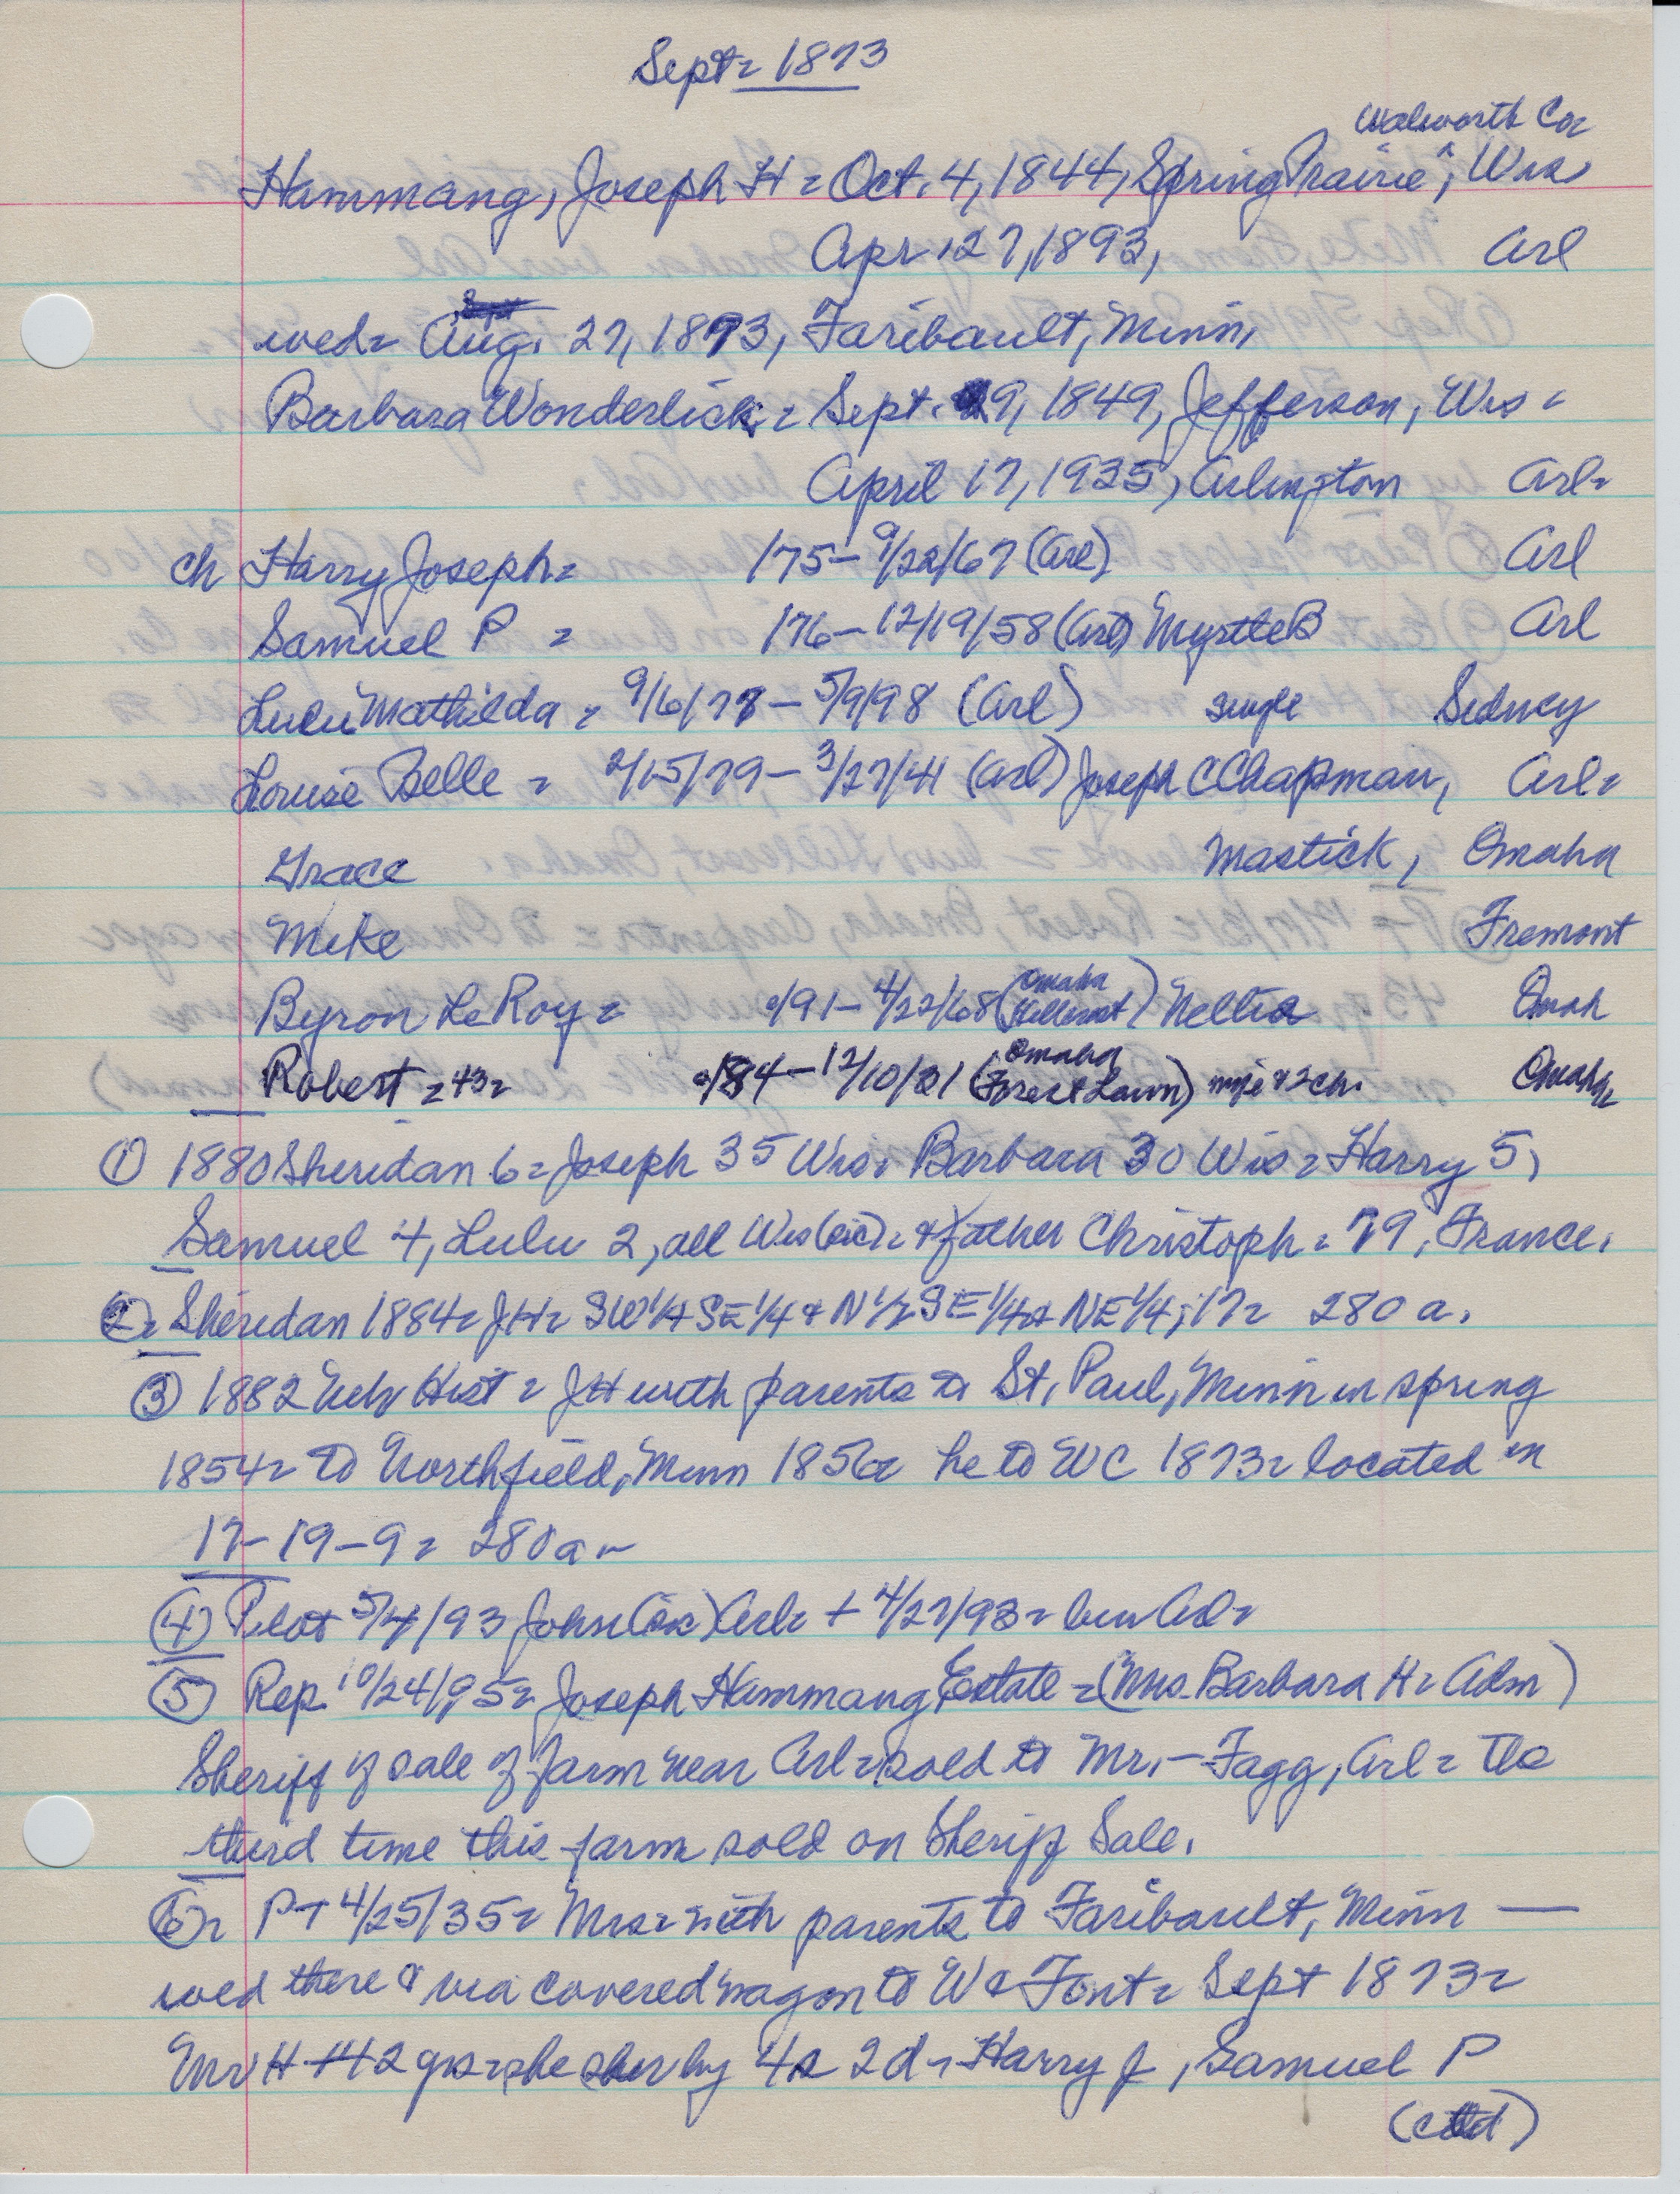 Sept = 1873
Walworth Co =
Hammang, Joseph H = Oct. 4, 1844, Spring Prairie ^, Wis
Apr. 27, 1893, Arl
Sept
wed = Aug. 27, 1873, Faribault, Minn,
Barbara Wonderlick = Sept. 9, 1849, Jefferson, Wis =
April 17, 1935, Arlington Arl =
ch Harry Joseph = /75 - 9/22/67 (Arl) Arl
Samuel P = /76 - 12/19/58 (Arl) Myrtle B Arl
Lulu Mathilda = 9/6/77 - 5/9/98 (Arl) single Sidney
Louise Belle = 2/15/79 - 3/27/41 (Arl) Joseph C Chapman, Arl =
Grace Mastick, Omaha
Mike Fremont
Byron LeRoy = /91 - 4/22/68 (Omaha Hillcrest) Nettie Omah
Robert = 43 = /84 - 12/10/31 (Omaha Forest Lawn) wife & 2 ch. Omaha =
① 1880 Sheridan 6 = Joseph 35 Wis = Barbara 30 Wis = Harry 5,
Samuel 4, Lulu 2, all Wis (sic) = & father Christoph = 79, France.
② = Sheridan 1884 = JH = SW 1/4 SE 1/4 & N 1/2 SE 1/4 & NE 1/4; 17 = 280 a.
③ 1882 Neb Hist = JH with parents to St. Paul, Minn in spring
1854 = to Northfield, Minn 1856 = he to WC 1873 = located in
17-19-9 = 280 a =
④ Pilot 5/4/93 John (sic) Arl = + 4/27/93 = bur Arl =
⑤ Rep. 10/24/95 = Joseph Hammang Estate = (Mrs. Barbara H = Adm)
Sheriff's sale of farm near Arl = sold to Mr. - Fagg, Arl = the
third time this farm sold on Sheriff Sale.
⑥ = PT 4/25/35 = Mrs = with parents to Faribault, Minn —
wed there & via covered wagon to W & Font = Sept 1873 =
Mr H + 42 = she by 4s 2d = Harry J, Samuel P
(cttd)